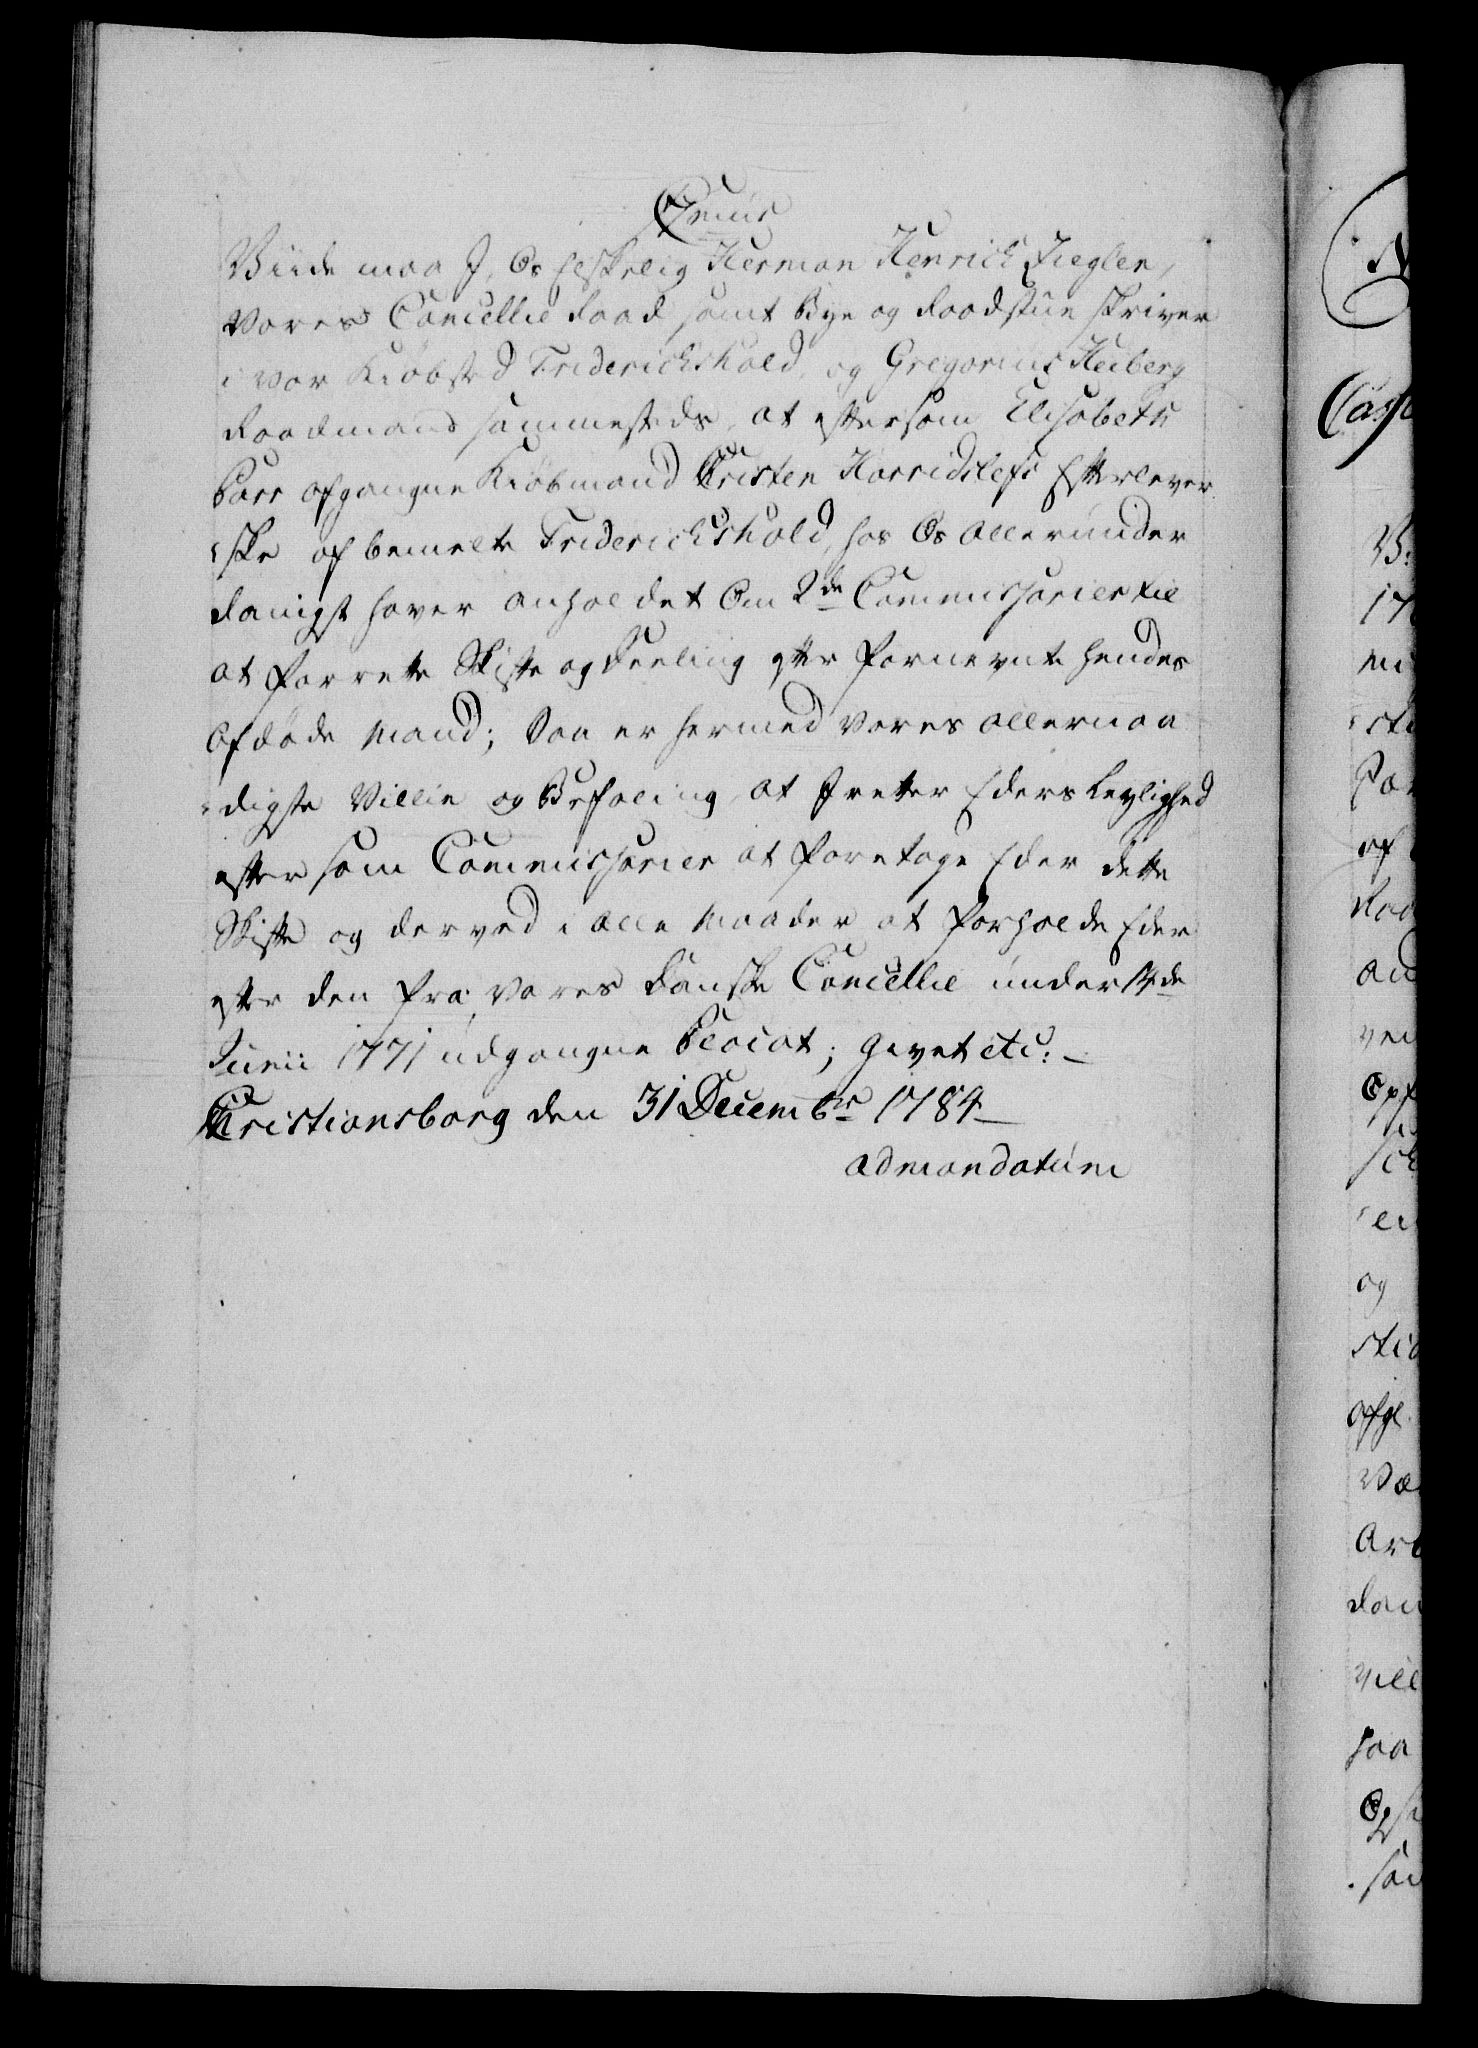 Cæmis
Viide maa I, Os elskelig Herman Henrich Ziegler,
Vores Cancellie Raad samt Bye og Raadstue skriver
i vor Kiöbsted Friderichshald, og Gregorius Heiberg
Raadmand sammesteds, at eftersom Elisabeth
Parr afgangne Kiöbmand Christen Harridslefs Efterlever
ske af bemelte Friderichshald, hos Os allerunder
danigst haver anholdet Om 2de Commissarier til
at forrette Skifte og Deeling efter fornevnte hendes
afdöde Mand; Saa er hermed Vores allernaa
digste Villie og Befaling, at I retter Eders Leylighed
efter som Commissarier at foretage Eder dette
Skifte og derved i alle Maader at forholde Eder
efter den fra Vores Danske Cancellie under 14de
Junii 1771 udgangne Placat; Givet etc: –
Christiansborg den 31 Decembr 1784
admandatum